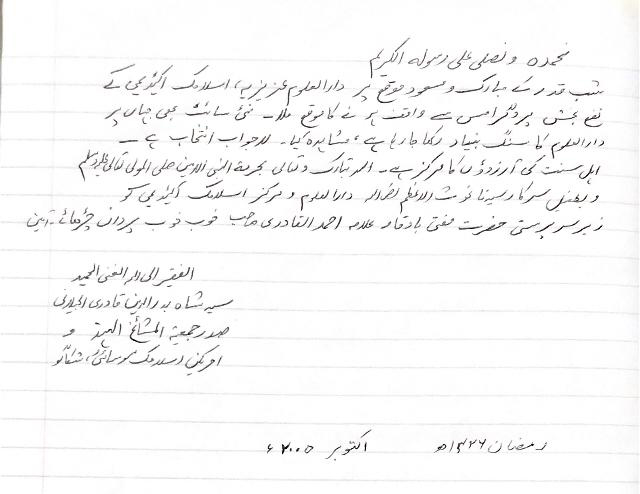 نحمدہ و نصلی علی رسولہ الکریم
شب قدر کے مبارک و مسعود موقع پر دارالعلوم عزیزیہ، اسلامک اکیڈیمی کے
نفع بخش پروگرامس سے واقف ہونے کا موقع ملا۔ نئی سائٹ بھی جہاں پر
دارالعلوم کا سنگ بنیاد رکھا جا رہا ہے، مشاہدہ کیا۔ لاجواب انتخاب ہے۔
اہل سنت کی آرزوؤں کا مرکز ہے۔ اللہ تبارک و تعالی بحرمۃ النبی الامین صلی المولی تعالی علیہ وسلم
و بطفیل سرکار سیدنا غوث الاعظم دارالعلوم و مرکز اسلامک اکیڈیمی کو
زیر سرپرستی حضرت مفتی باوقار علامہ احمد القادری صاحب خوب خوب پروان چڑھائے۔ آمین
الفقیر الی اللہ الغنی الحمید
سید شاہ بدرالدین قادری الجیلانی
صدر جمعیۃ المشائخ الہند و
امریکن اسلامک سوسائٹی، شکاگو
رمضان ۱۴۲۶ھ اکتوبر ۲۰۰۵ء